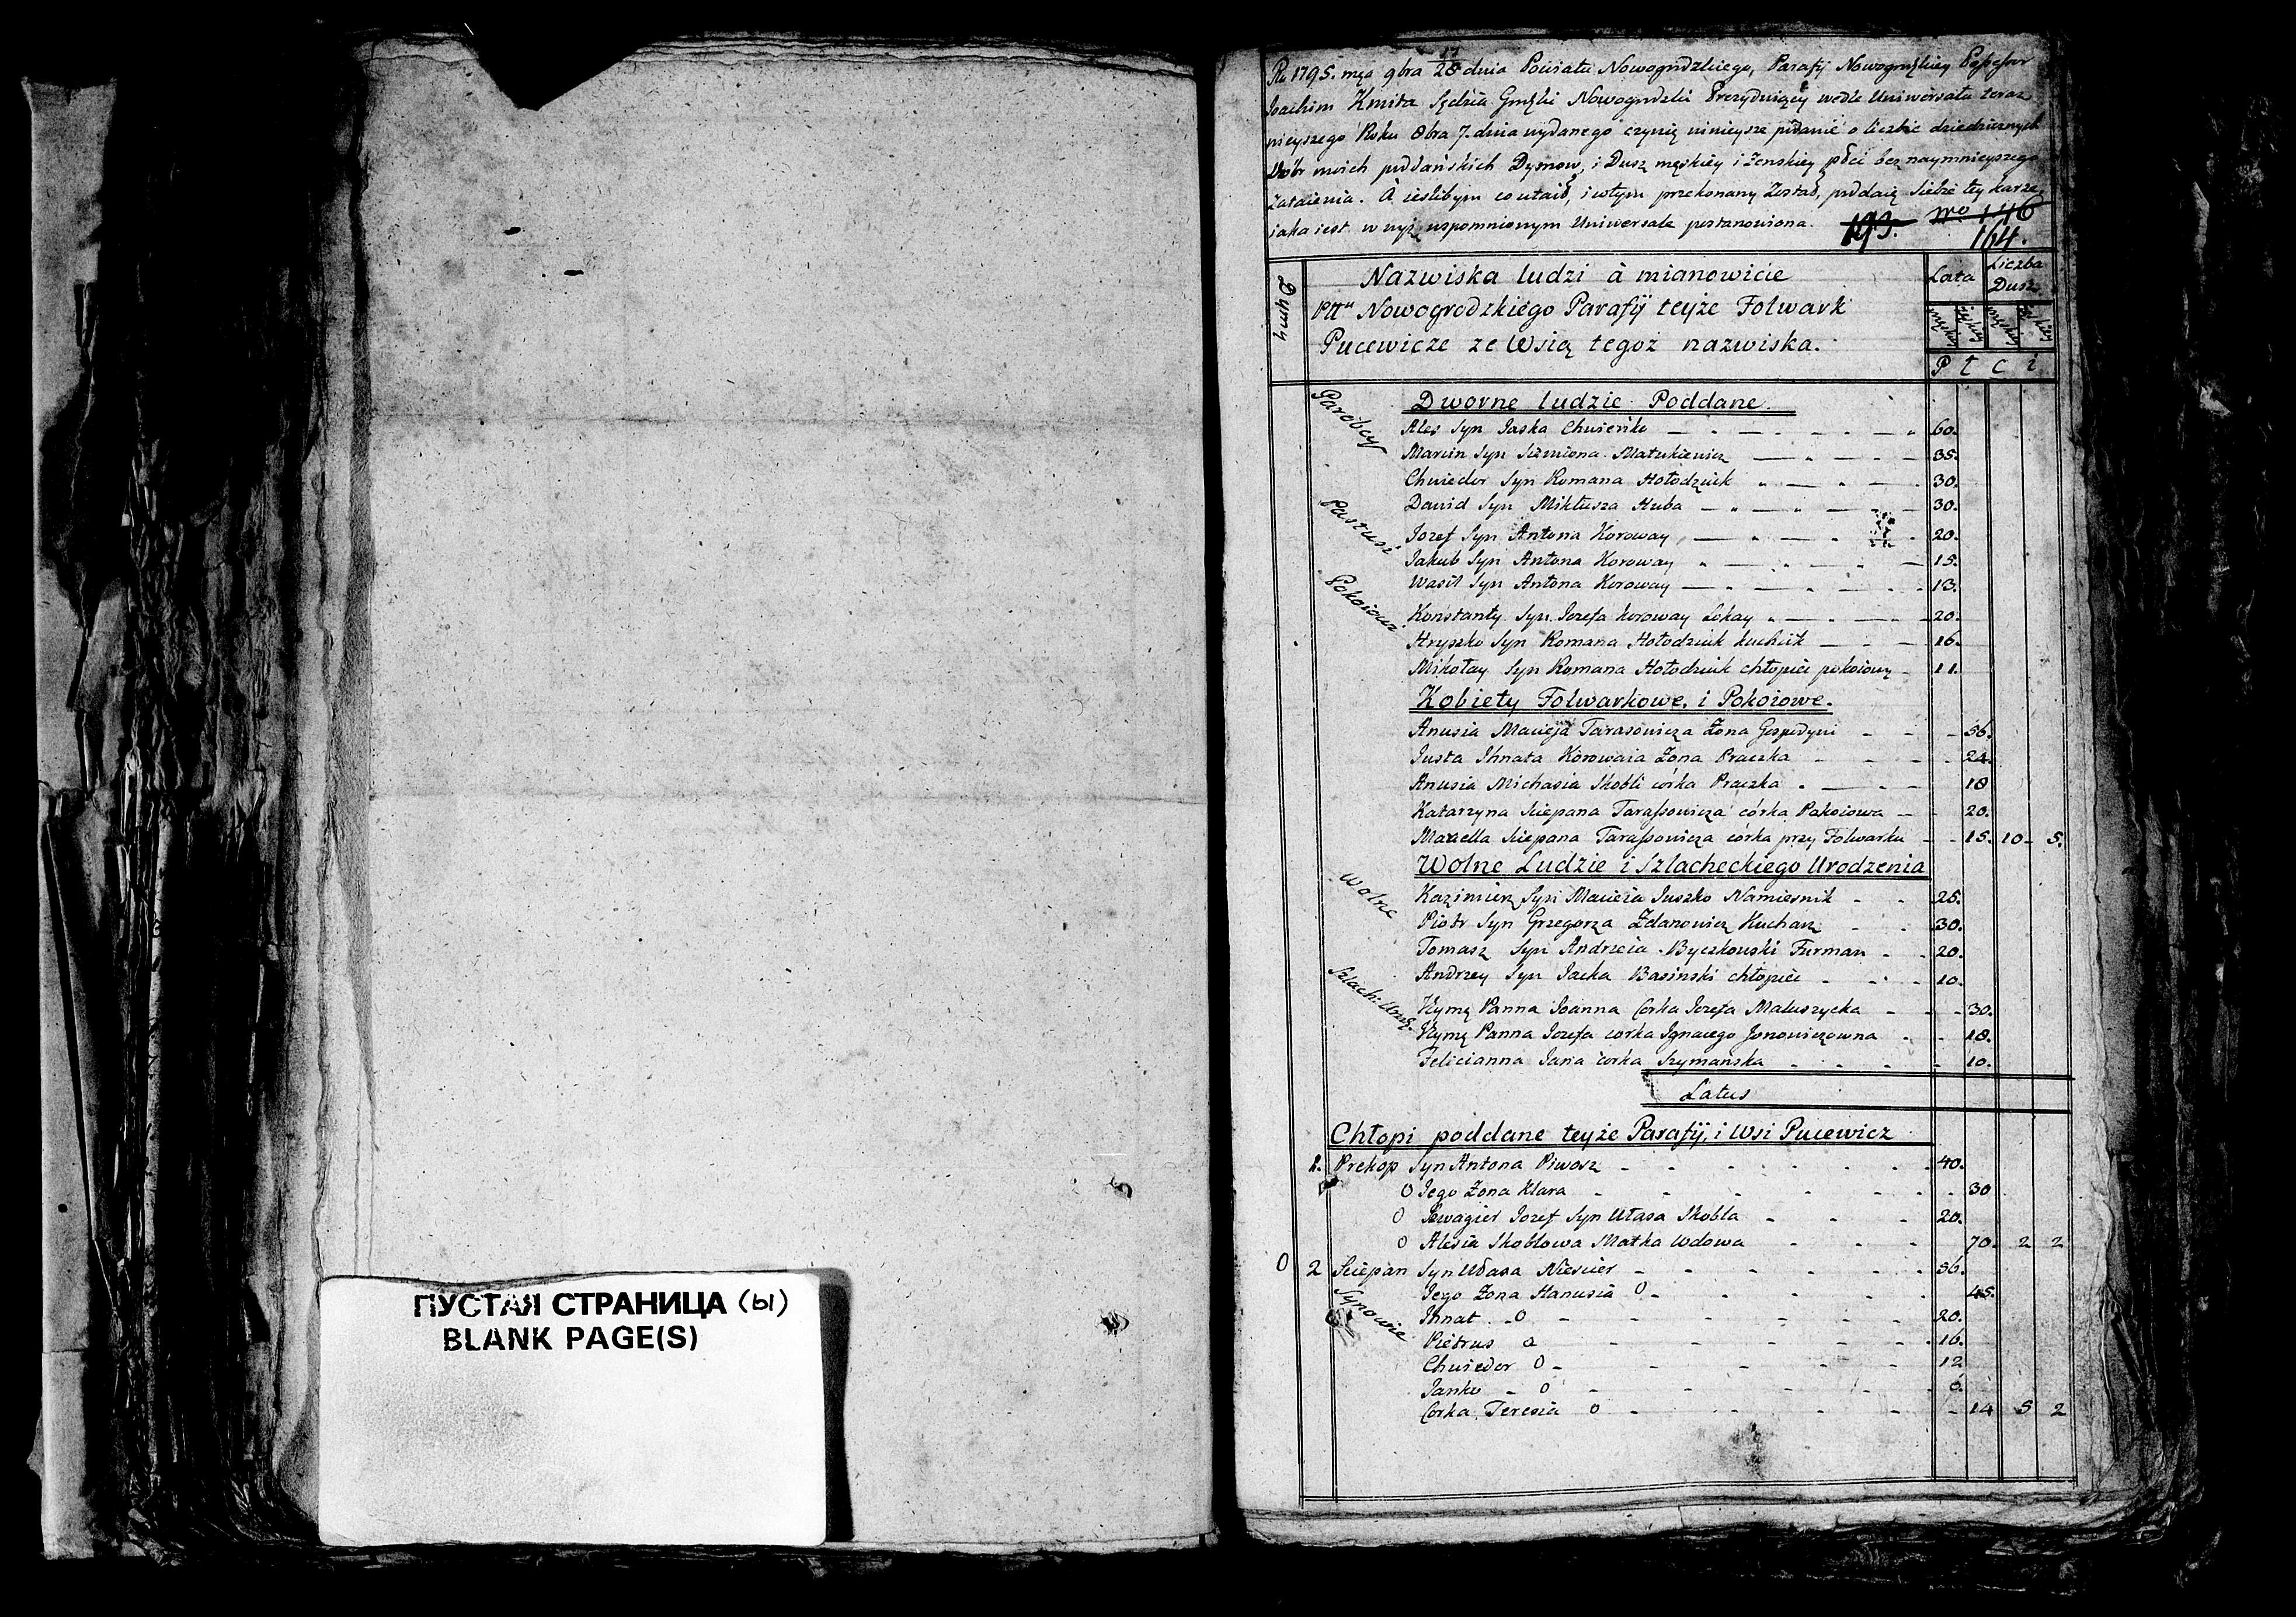 ПУСТАЯ СТРАНИЦА (ы)
BLANK PAGE(S)
Ru 1795. mca 9bra 17/28 dnia Powiatu Nowogrodzkiego, Parafij Nowogrodzkiey Possessor
Joachim Kmita Sędzia Grodzki Nowogrodzki Prezyduiący wedle Uniwersału teraz
nieyszego Roku 8bra 7. dnia wydanego czynię ninieysze podanie o liczbie dziedzicznych
Dóbr moich poddańskich Dymow, i Dusz męskiey i żenskiey płci bez naymnieyszego
zataienia. A ieslibym co utaił, i wtym przekonany został, poddaię siebie tey karze,
iaka iest w wyż wspomnionym Uniwersale postanowiona. 193. Nro 146
164.
Dymy
Nazwiska ludzi à mianowicie
Pttu Nowogrodzkiego Parafij teyże Folwark
Pucewicze ze Wsią tegoż nazwiska.
Lata
Liczba
Dusz
P ł c i
Parobcy
Dworne ludzie Poddane.
Ales Syn Jaska Chwieńko 60.
Marcin Syn Siemiona Matukiewicz 35.
Chwiedor Syn Romana Hołodziuk 30.
Dawid Syn Mikłusza Huba 30.
Pastusi
Jozef Syn Antona Koroway 20.
Jakub Syn Antona Koroway 15.
Wasil Syn Antona Koroway 13.
Pokoiowi
Konstanty Syn Jozefa Koroway Lokay 20.
Hryszko Syn Romana Hołodziuk kuchcik 16.
Mikołay Syn Romana Hołodziuk chłopiec pokoiowy 11.
Kobiety Folwarkowe, i Pokoiowe.
Anusia Macieja Tarasowicza Żona Gospodyni 36.
Justa Ihnata Korowaia Żona Praczka 24.
Anusia Michasia Skobli córka Praczka 18
Katarzyna Sciepana Tarassowicza córka Pakoiowa 20.
Marcella Sciepana Tarassowicza córka przy Folwarku 15. 10 5.
Wolne Ludzie i Szlacheckiego Urodzenia
Wolne
Kazimierz Syn Macieia Juszko Namiesnik 25.
Piotr Syn Grzegorza Zdanowicz Kucharz 30.
Tomasz Syn Andrzeia Byczkowski Furman 20.
Szlach: Urodz.
Andrzey Syn Jacka Basinski chłopiec 10.
Panna Joanna Corka Jozefa Matuszycka 30.
Panna Jozefa corka Ignacego Jonowiczowna 18.
Felicianna Jana corka Szymańska 10.
Latus
Chłopi poddane teyże Parafij, i Wsi Pucewicz
1. Prekop Syn Antona Piwosz 40.
0 Jego Żona Klara 30
0 Szwagier Jozef Syn Ułasa Skobla 20.
0 Alesia Skoblowa Matka Wdowa 70. 2 2
0 2 Sciepan Syn Ułasa Niescier 56.
Jego Żona Hanusia 0 45.
Synowie
Ihnat 0 20.
Pietrus 0 16.
Chwiedor 0 12
Janko 0 6.
Corka Teresia 0 14 5 2